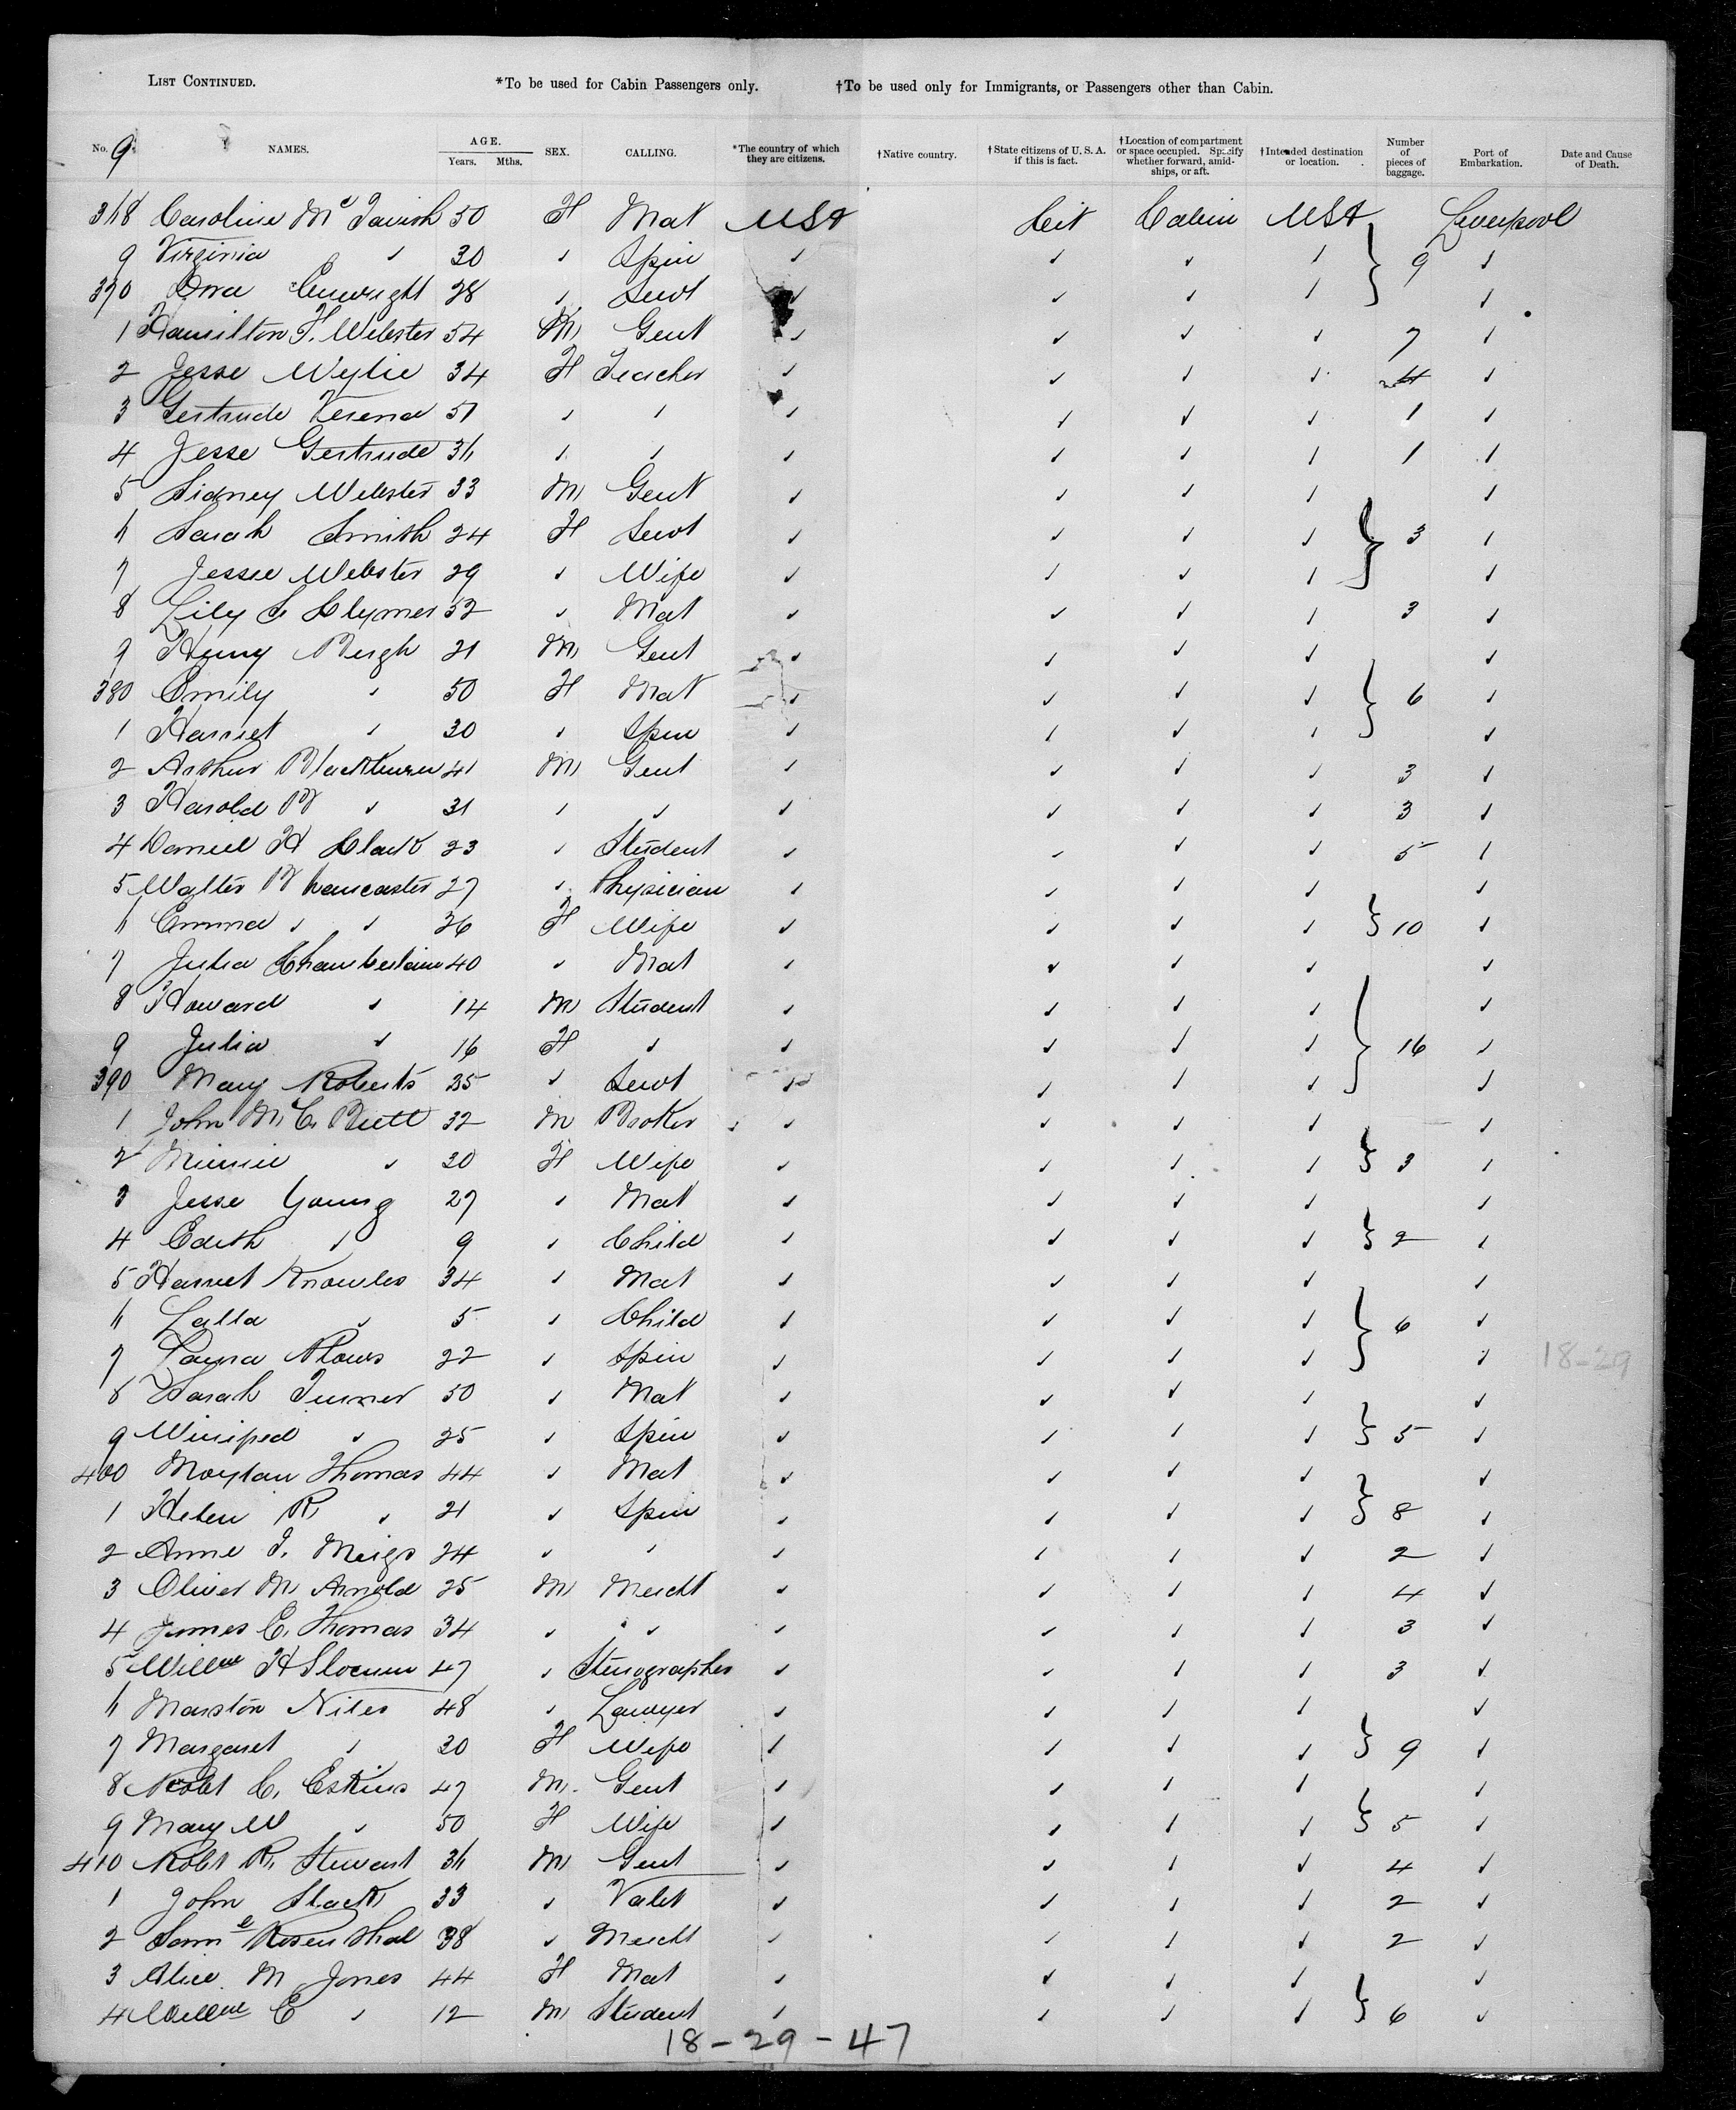 LIST CONTINUED. *To be used for Cabin Passengers only. †To be used only for Immigrants, or Passengers other than Cabin.
No. 9 NAMES. AGE. Years. Mths. SEX. CALLING. *The country of which they are citizens. †Native country. †State citizens of U. S. A. if this is fact. †Location of compartment or space occupied. Specify whether forward, amidships, or aft. †Intended destination or location. Number of pieces of baggage. Port of Embarkation. Date and Cause of Death.
368 Caroline Mc Tavish 50 F Mat USA Cit Cabin USA Liverpool
9 Virginia " 30 " Spin " " " " 9 "
370 Dora 28 " Servt " " " " "
1 Hamilton F. Webster 54 M Gent " " " " 7 "
2 Jesse Wylie 34 F Teacher " " " " 4 "
3 Gertrude Verena 51 " " " " " " 1 "
4 Jesse Gertrude 36 " " " " " " 1 "
5 Sidney Webster 33 M Gent " " " " "
6 Sarah Smith 24 F Servt " " " " 3 "
7 Jessie Webster 29 " Wife " " " " "
8 Lily S Clymer 52 " Mat " " " " 3 "
9 Henry Bergh 21 M Gent " " " " "
380 Emily " 50 F Mat " " " " 6 "
1 Harriet " 30 " Spin " " " " "
2 Arthur Blackburn 41 M Gent " " " " 3 "
3 Harold B " 31 " " " " " " 3 "
4 Daniel H Clark 23 " Student " " " " 5 "
5 Walter B Lancaster 27 " Physician " " " " "
6 Emma " " 26 F Wife " " " " 10 "
7 Julia Chamberlain 40 " Mat " " " " "
8 Howard " 14 M Student " " " " "
9 Julia " 16 F " " " " " 16 "
390 Mary Roberts 25 " Servt " " " " "
1 John M. C. 32 M Broker " " " " "
2 Minnie " 20 F Wife " " " " 3 "
3 Jesse Young 27 " Mat " " " " "
4 Edith " 9 " Child " " " " 2 "
5 Harriet Knowles 34 " Mat " " " " "
6 Lalla " 5 " Child " " " " 6 "
7 Laura 22 " Spin " " " " " 18-29
8 Sarah Turner 50 " Mat " " " " "
9 Winifred " 25 " Spin " " " " 5 "
400 Moylan Thomas 44 " Mat " " " " "
1 Helen R " 21 " Spin " " " " 8 "
2 Anne T. Meigs 24 " " " " " " 2 "
3 Oliver M Arnold 25 M Mercht " " " " 4 "
4 James C. Thomas 34 " " " " " " 3 "
5 Willm H Slocum 47 " Stenographer " " " " 3 "
6 Marston Niles 48 " Lawyer " " " " "
7 Margaret " 30 F Wife " " " " 9 "
8 Robt C. 47 M. Gent " " " " "
9 Mary W " 50 F Wife " " " " 5 "
410 Robt R. Stewart 36 M Gent " " " " 4 "
1 John Slack 33 " Valet " " " " 2 "
2 Saml Rosenthal 38 " Mercht " " " " 2 "
3 Alice M Jones 44 F Mat " " " " "
4 Willm C " 12 M Student " " " " 6 "
18-29-47